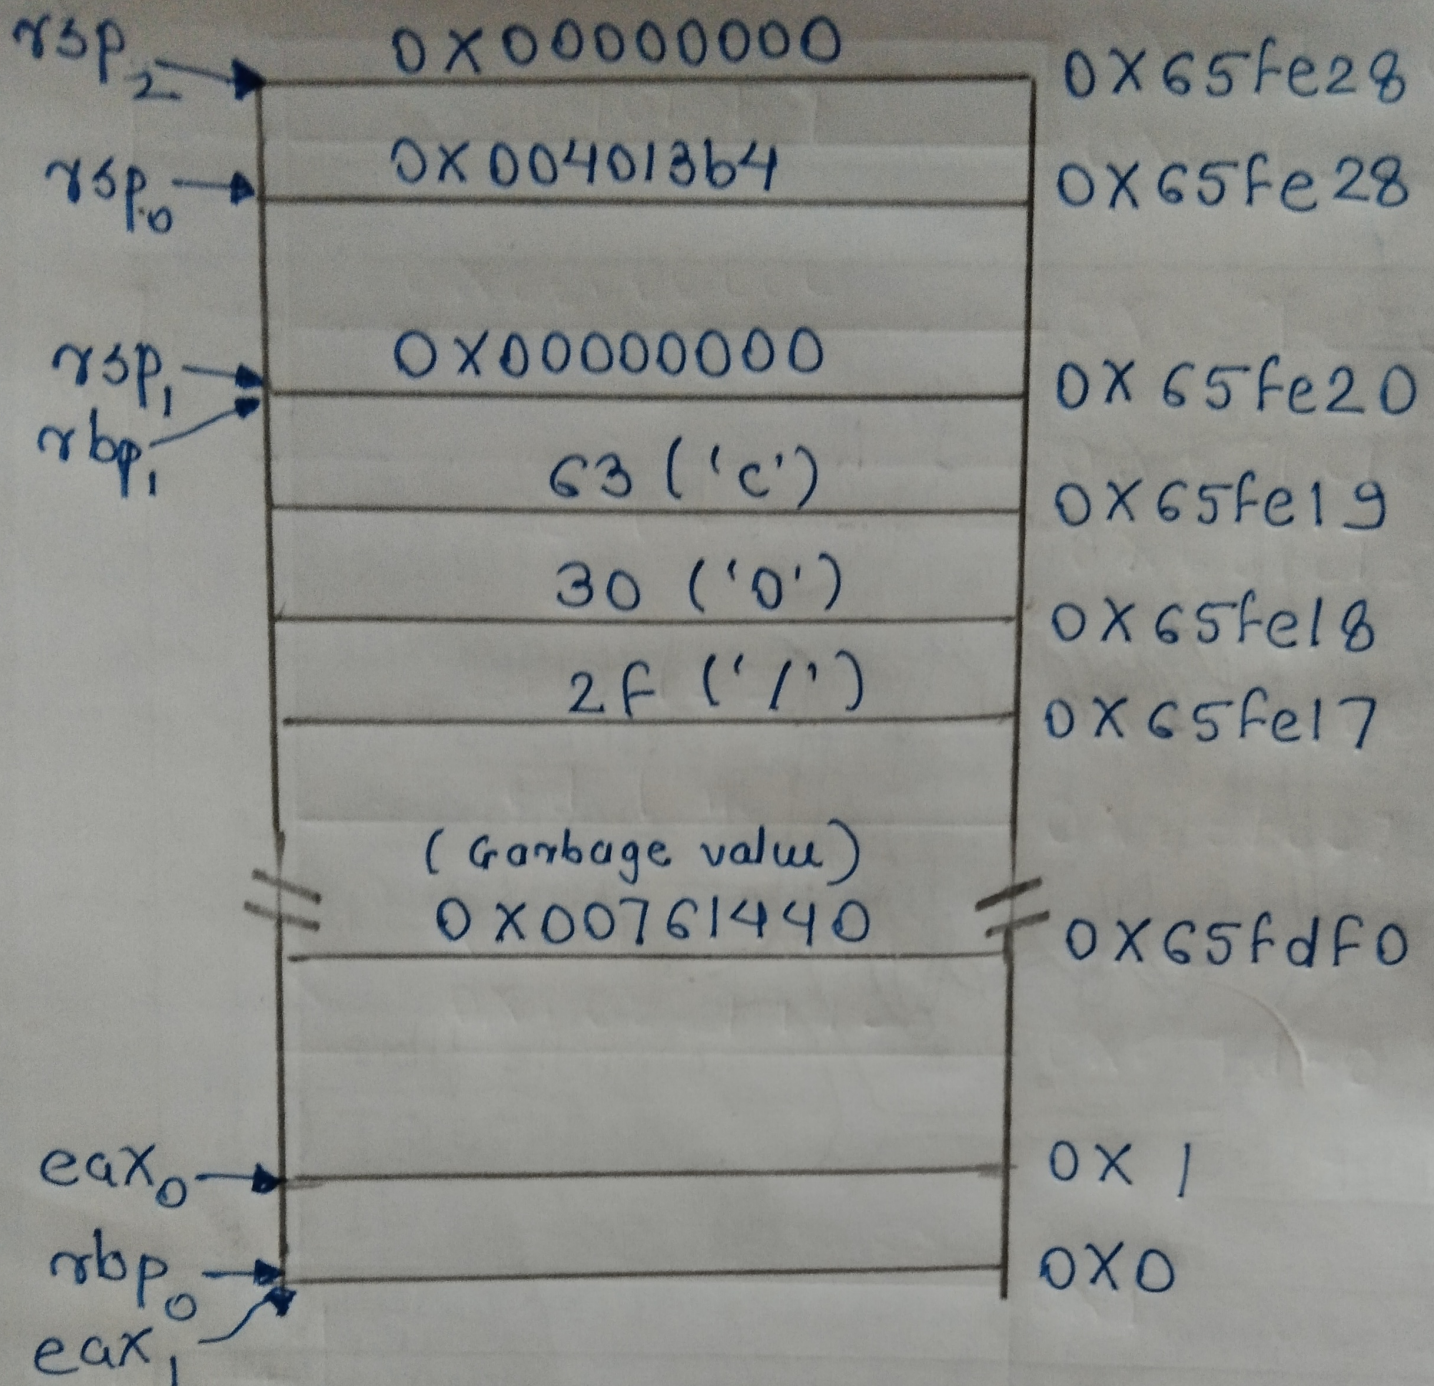 rsp2 0X00000000 0X65fe28
rsp0 0X004013b4 0X65fe28
rsp1 0X00000000 0X65fe20
rbp1
63 ('c') 0X65fe19
30 ('0') 0X65fe18
2f ('/') 0X65fe17
(Garbage value)
0X00761440 0X65fdf0
eax0 0X1
rbp0 0X0
eax1